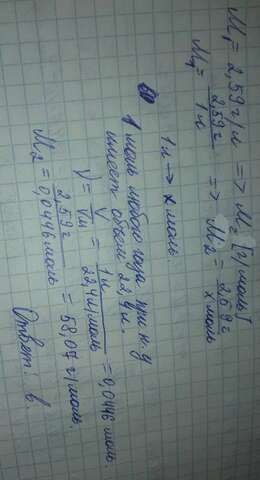 M₁ = 2,59 г/л => M₂ [г/моль]
M₁ = 2,59 г / 1 л => M₂ = 2,59 г / x моль
1 л → x моль.
1 моль любого газа при н.у
имеет объем 22,4 л.
ν = V / Vm = 1 л / 22,4 л/моль = 0,0446 моль.
M₂ = 2,59 г / 0,0446 моль = 58,07 г/моль.
Ответ: в.